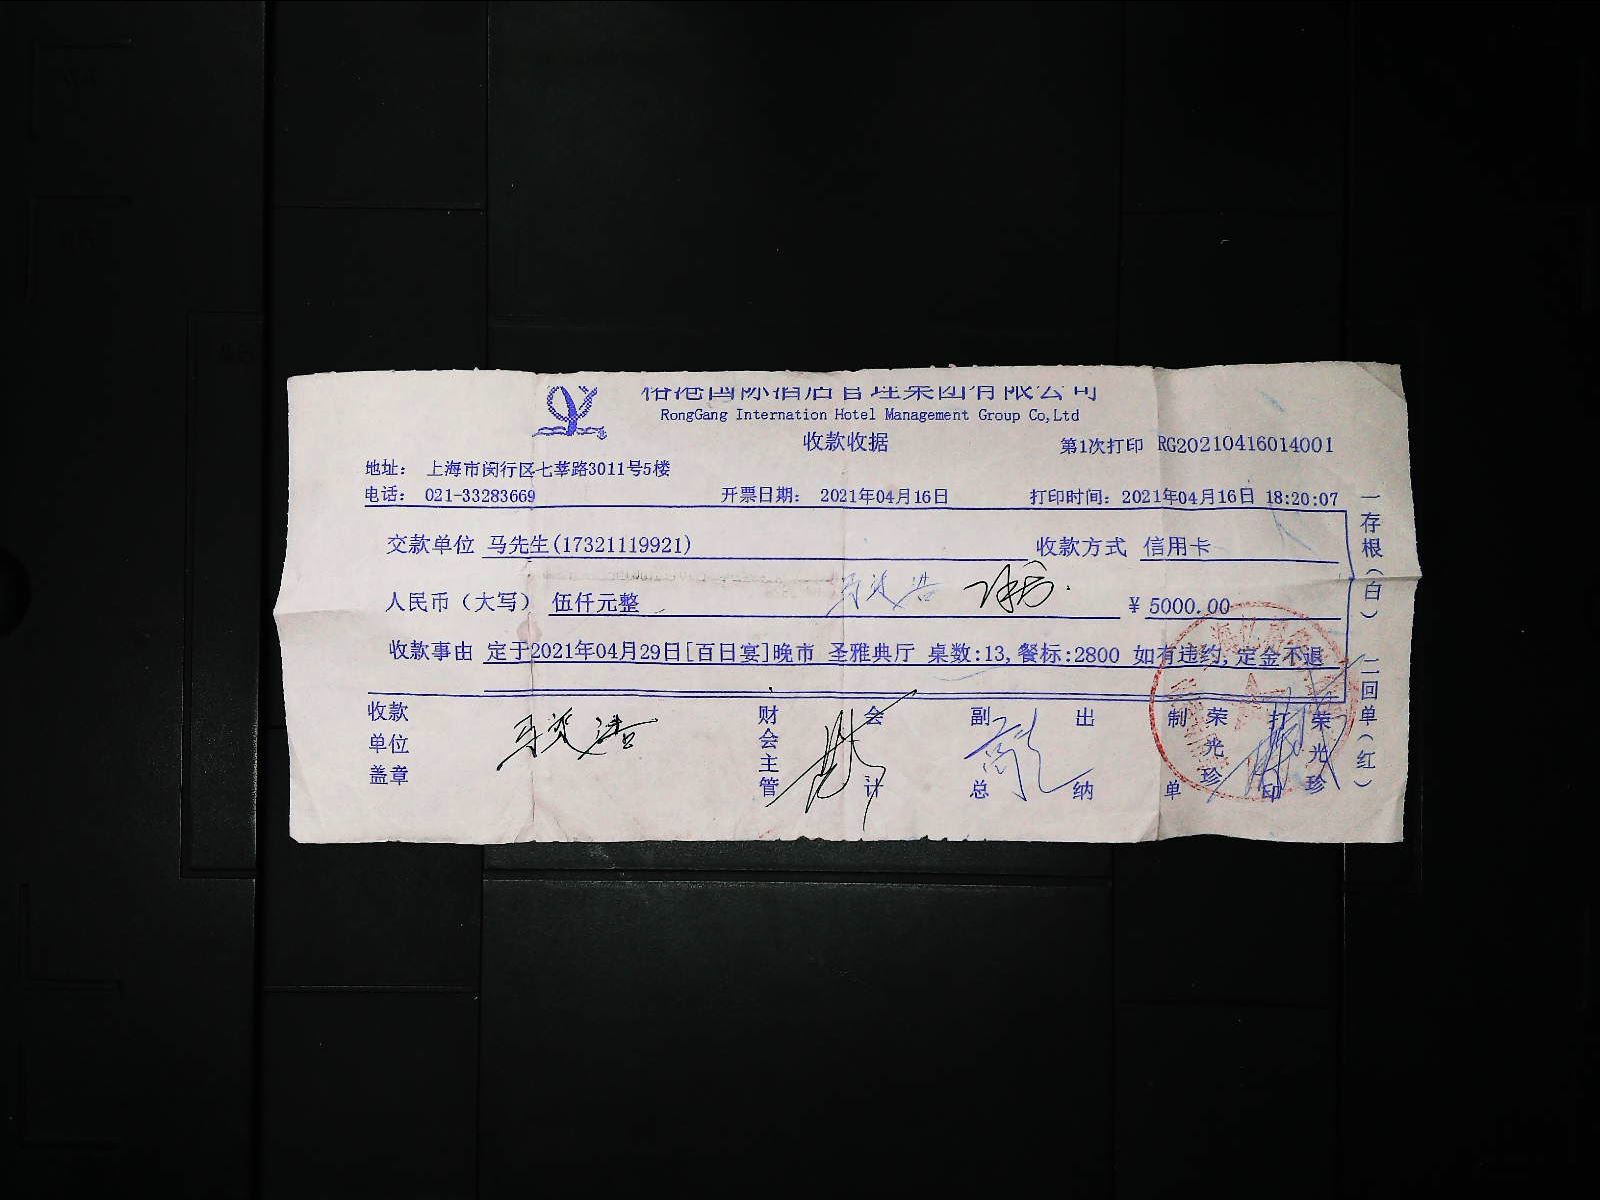 榕港国际酒店管理集团有限公司
RongGang Internation Hotel Management Group Co,Ltd
收款收据
第1次打印 RG20210416014001
地址： 上海市闵行区七莘路3011号5楼
电话： 021-33283669 开票日期： 2021年04月16日 打印时间：2021年04月16日 18:20:07
交款单位 马先生(17321119921) 收款方式 信用卡
人民币（大写） 伍仟元整 ¥ 5000.00
收款事由 定于2021年04月29日[百日宴]晚市 圣雅典厅 桌数:13,餐标:2800 如有违约,定金不退
收款单位盖章 财会主管 会计 副总 出纳 制单 荣光珍 打印 荣光珍
一存根（白） 二回单（红）